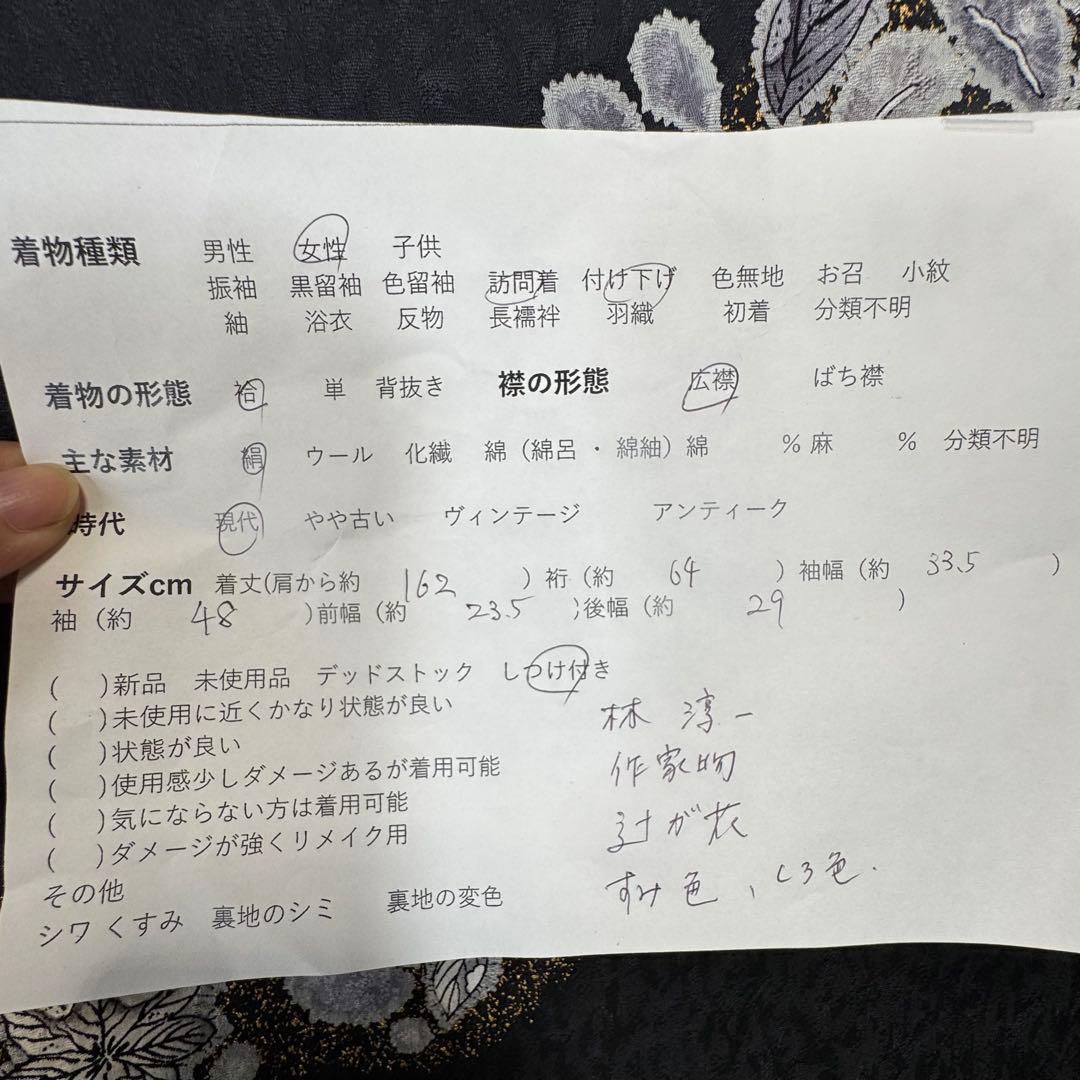 着物種類 男性 女性 子供
振袖 黒留袖 色留袖 訪問着 付け下げ 色無地 お召 小紋
紬 浴衣 反物 長襦袢 羽織 初着 分類不明
着物の形態 袷 単 背抜き 襟の形態 広襟 ばち襟
主な素材 絹 ウール 化繊 綿（綿呂・綿紬）綿 %麻 % 分類不明
時代 現代 やや古い ヴィンテージ アンティーク
サイズcm 着丈(肩から約 162 ) 裄（約 64 ）袖幅（約 33.5 ）
袖（約 48 ）前幅（約 23.5 ）後幅（約 29 ）
( )新品 未使用品 デッドストック しつけ付き
( )未使用に近くかなり状態が良い
( )状態が良い
( )使用感少しダメージあるが着用可能
( )気にならない方は着用可能
( )ダメージが強くリメイク用
その他
シワ くすみ 裏地のシミ 裏地の変色
林 淳一
作家物
辻が花
すみ色、くろ色.